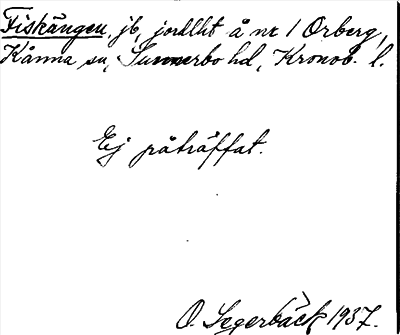 Fiskängen, jb, jordlht å nr 1 Orberg,
Kånna sn, Sunnerbo hd, Kronob. l.
Ej påträffat.
O. Segerbäck 1937.